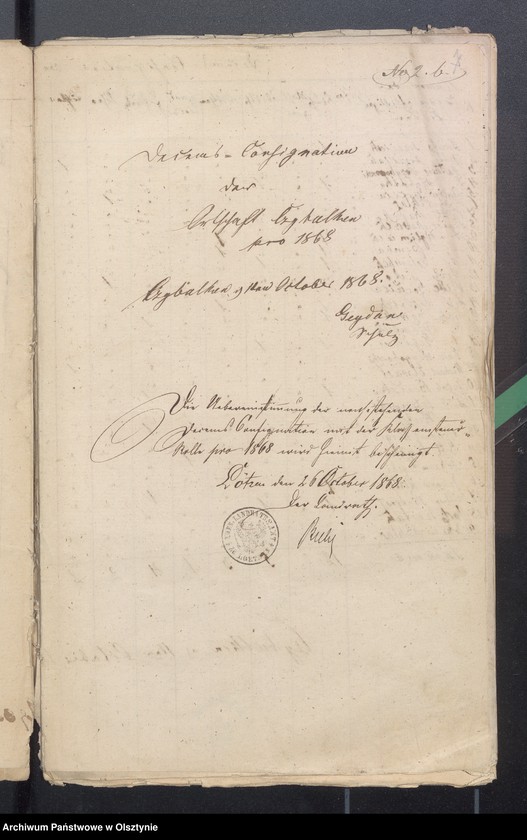 No 2. b.
Decems-Consignation
der
Ortschaft Czybulken
pro 1868
Czybulken, 9ten October 1868.
Geydan
Schulz
Die Uebereinstimmung der vorstehenden
Decems Consignation mit der Klassensteuer-
Rolle pro 1868 wird hiermit bescheinigt
Lötzen den 26 October 1868.
Der Landrath.
Archiwum Państwowe w Olsztynie